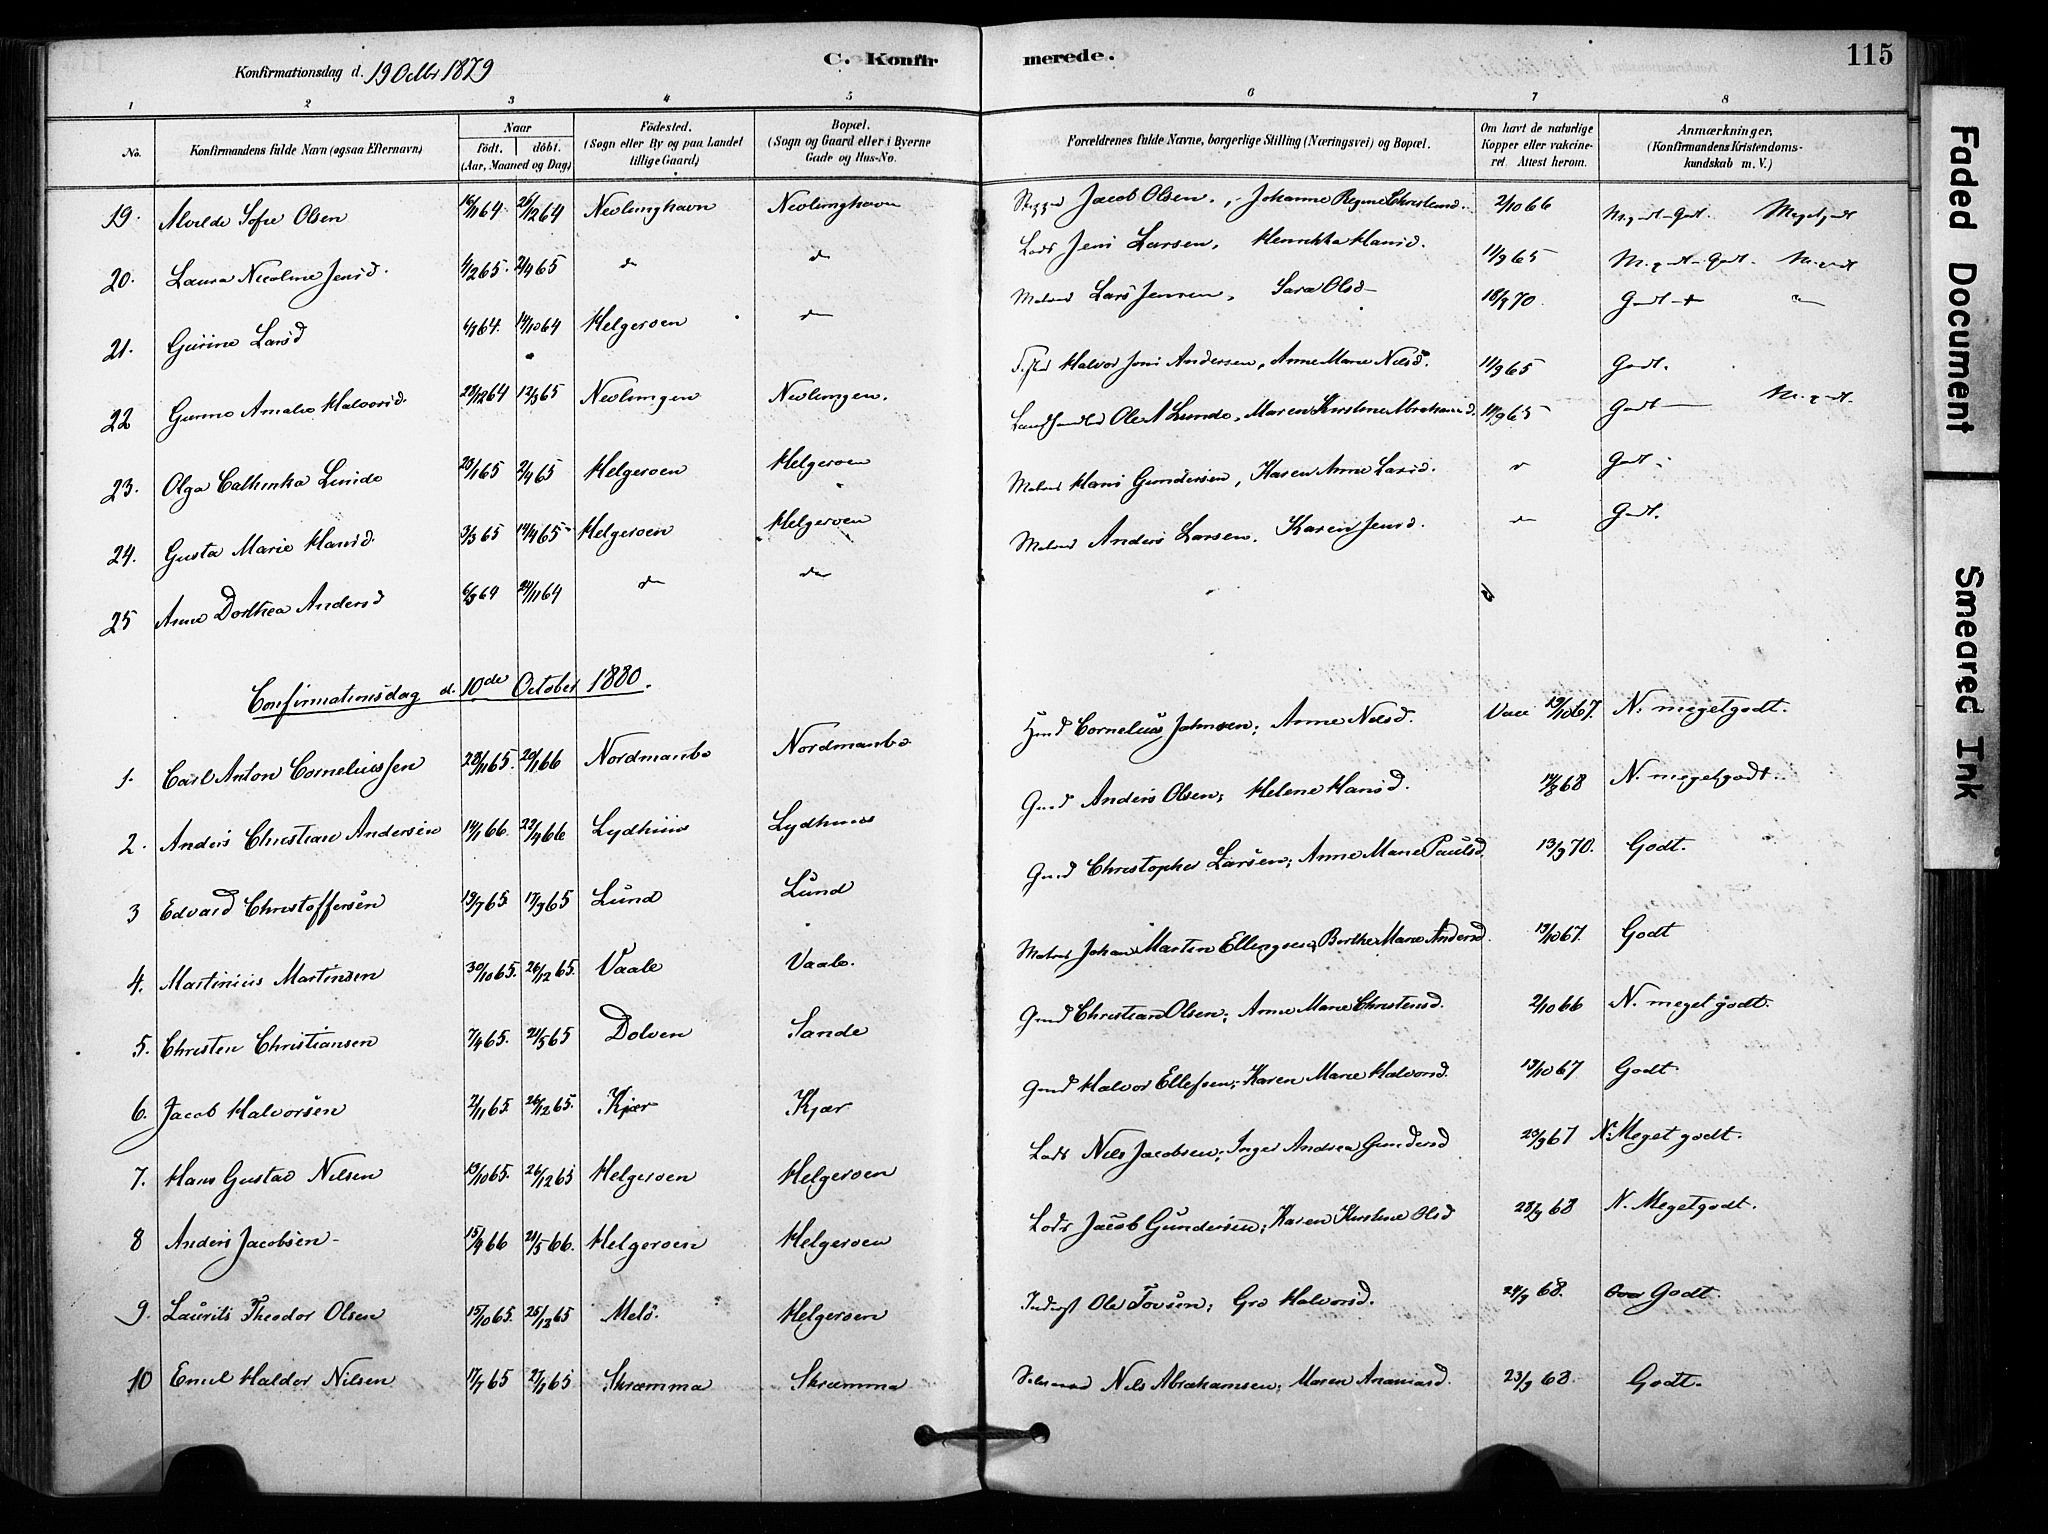 Konfirmationsdag d. 19 Octbr 1879
C. Konfirmerede.
115
1 2 3 4 5 6 7 8
No. Konfirmandens fulde Navn (ogsaa Efternavn) Naar Födt. döbt. (Aar, Maaned og Dag) Födested. (Sogn eller By og paa Landet tillige Gaard) Bopæl. (Sogn og Gaard eller i Byerne Gade og Hus-No. Forældrenes fulde Navne, borgerlige Stilling (Næringsvei) og Bopæl. Om havt de naturlige Kopper eller vakcineret. Attest herom. Anmærkninger. (Konfirmandens Kristendomskundskab m. V.)
19. Sofie Olsen 16/11 64 26/12 64 Nevlinghavn Nevlinghavn Jacob Olsen, Johanne Regine 2/10 66 M. godt-Godt. Megetgodt
20. Laura Nicoline Jensd. 4/2 65. 2/4 65 do do Lods Jens Larsen, Henrikka Hansd. 11/9 65 M. godt-Godt. M. godt
21. Gurine Larsd 14/10 64 Helgeroen do Matros Lars Jensen, Sara Olsd 18/9 70. Godt
22 Amalie Halvorsd. 28/12 64 12/3 65 Nevlingen Nevlingen. Halvor Jens Andersen, Anne Marie Nilsd. 11/9 65 Godt.
23. Olga Cathinka Lunde 23/1 65 2/4 65 Helgeroen Helgeroen Landhandler Ole A Lunde, Maren Kirstine Abrahamsd. 11/9 65 Godt M. godt.
24. Gusta Marie Hansd. 3/3 65 14/4 65 Helgeroen Helgeroen Matros Hans Gundersen, Karen Anne Larsd. do Godt.
25 Anne Dorthea Andersd 6/9 64 24/11 64 do do Matros Anders Larsen. Karen Jensd. do Godt.
Confirmationsdag d. 10de October 1880.
1. Carl Anton Corneliussen 28/11 65. 20/1 66 Nordmanbo Nordmanbo Cornelius Johnsen; Anne Nilsd. Vacc 19/10 67. N. megetgodt.
2. Anders Christian Andersen 14/1 66. 22/4 66 Lydhuus Lydhuus Gmd Anders Olsen; Helene Hansd. N. megetgodt.
3 Edvard Christoffersen 19/7 65. 17/9 65 Lund Lund Gmd Christopher Larsen; Anne Marie Paulsd. 13/9 70. Godt.
4. Martinius Martinsen 30/10 65. 26/12 65. Vaale Vaale. Matros Johan Martin Ellingsen; Berthe Marie Andersd. 19/10 67. Godt
5. Christen Christiansen 7/4 65. 21/5 65 Dolven Sande Gmd Christian Olsen; Anne Marie Christensd. 2/10 66 N. meget godt.
6. Jacob Halvorsen 2/11 65. 26/12 65. Kjær Kjær Gmd Halvor Ellefsen; Karen Marie Halvorsd. 19/10 67 Godt
7. Hans Gustav Nilsen 19/10 65. 26/12 65 Helgeroen Helgeroen Lods Nils Jacobsen; Inger Andrea Gundersd 23/9 67 N. Meget godt.
8 Anders Jacobsen 15/4 66 21/5 66. Helgeroen Helgeroen Lods Jacob Gundersen; Karen Kirstine Olsd 28/9 68 N. Megetgodt.
9. Laurits Theodor Olsen 15/10 65. 25/12 65 Melö. Helgeroen Inderst Ole Tovsen; Gro Halvorsd. 24/9 68. Godt.
10 Emil Haldor Nilsen 17/7 65 Skræmma Skræmma Nils Abrahamsen; Maren Ananiasd. 23/9 68. Godt.
Faded Document
Smeared Ink